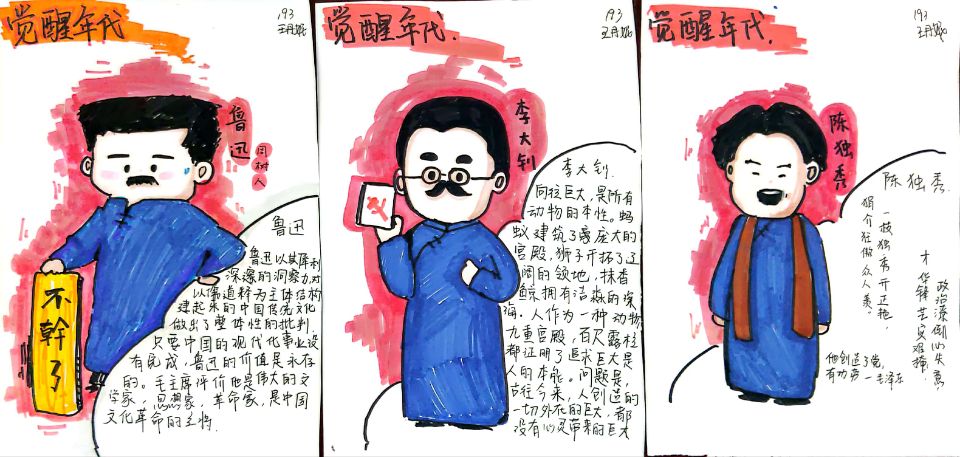 觉醒年代
193
鲁迅
周树人
不幹了
鲁迅
鲁迅以其犀利
深邃的洞察力,对
以儒道释为主体结构
建起来的中国传统文化
做出了整体性的批判.
只要中国的现代化事业没
有完成,鲁迅的价值是永存
的。毛主席评价他是伟大的文
学家,思想家,革命家,是中国
文化革命的主将.
觉醒年代.
193
李大钊
李大钊.
向往巨大,是所有
动物的本性。蚂
蚁建筑了豪庞大的
宫殿,狮子开拓了辽
阔的领地,抹香
鲸拥有浩淼的深
海。人作为一种动物,
九重宫殿,百尺露柱
都证明了追求巨大是
人的本能。问题是,
古往今来,人创造的
一切外在的巨大,都
没有心灵带来的巨大
觉醒年代.
193
陈独秀
陈独秀.
一枝独秀开正艳,
狷介狂傲众人羡.
才华锋芒实难掩,
政治潦倒心失意
他创造了党,
有功劳—毛泽东